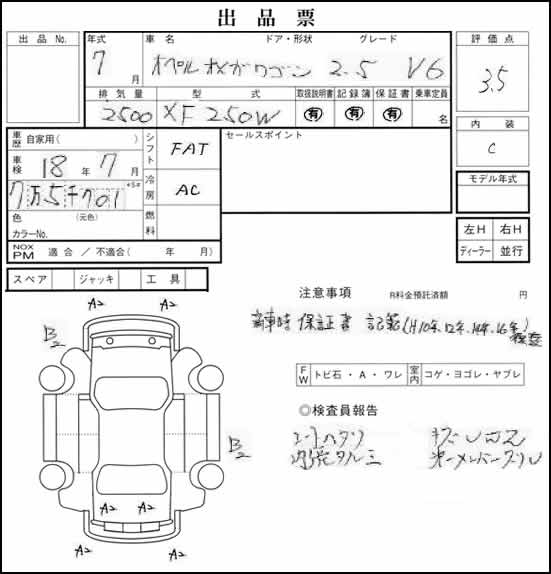 出品票
出品No. 年式 車名 ドア・形状 グレード 評価点
7月 オペル オメガワゴン 2.5 V6 3.5
排気量 型式 取扱説明書 記録簿 保証書 乗車定員
2500 XF250W 有 有 有 名
内装
C
車歴 自家用( ) シフト FAT セールスポイント
車検 18年7月
冷房 AC
7万5千701
モデル年式
色 (元色) 燃料
カラーNo.
左H 右H
ディーラー 並行
NOX PM 適合 / 不適合( 年 月)
スペア ジャッキ 工具
注意事項 R料金預託済額 円
保証書 記録(H10年.12年.14年.16年)
FW トビ石・A・ワレ 室内 コゲ・ヨゴレ・ヤブレ
◎検査員報告
シートハタリ
内張タルミ
A2 A2
B2
B2
A2 A2
A2 A2